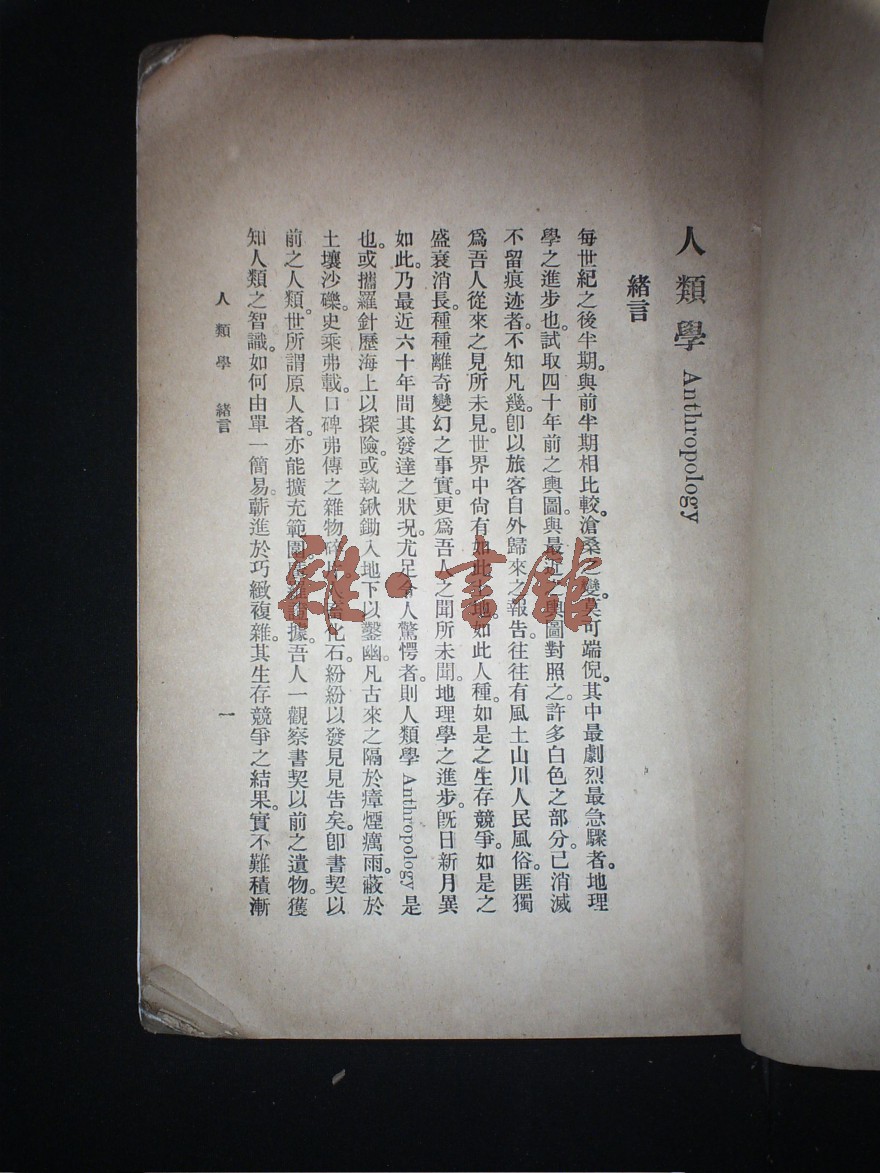 人類學 Anthropology
緒言
每世紀之後半期。與前半期相比較。滄桑之變。莫可端倪。其中最劇烈最急驟者。地理
學之進步也。試取四十年前之輿圖。與最近之輿圖對照之。許多白色之部分。已消滅
不留痕迹者。不知凡幾。卽以旅客自外歸來之報告。往往有風土山川人民風俗。匪獨
爲吾人從來之見所未見。世界中尙有如此土地。如此人種。如是之生存競爭。如是之
盛衰消長。種種離奇變幻之事實。更爲吾人之聞所未聞。地理學之進步。旣日新月異
如此。乃最近六十年間其發達之狀况。尤足令人驚愕者。則人類學 Anthropology 是
也。或攜羅針歷海上以探險。或執鍬鋤入地下以鑿幽。凡古來之隔於瘴煙癘雨。蔽於
土壤沙礫。史乘弗載。口碑弗傳之雜物碎片人畜化石。紛紛以發見見告矣。卽書契以
前之人類。世所謂原人者。亦能擴充範圍。據。吾人一觀察書契以前之遺物。獲
知人類之智識。如何由單一簡易。蘄進於巧緻複雜。其生存競爭之結果。實不難積漸
人類學 緒言
一
雜·書館